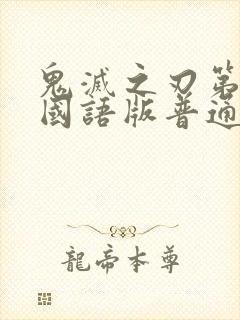 鬼滅之刃第
國語版普通
龍帝本尊